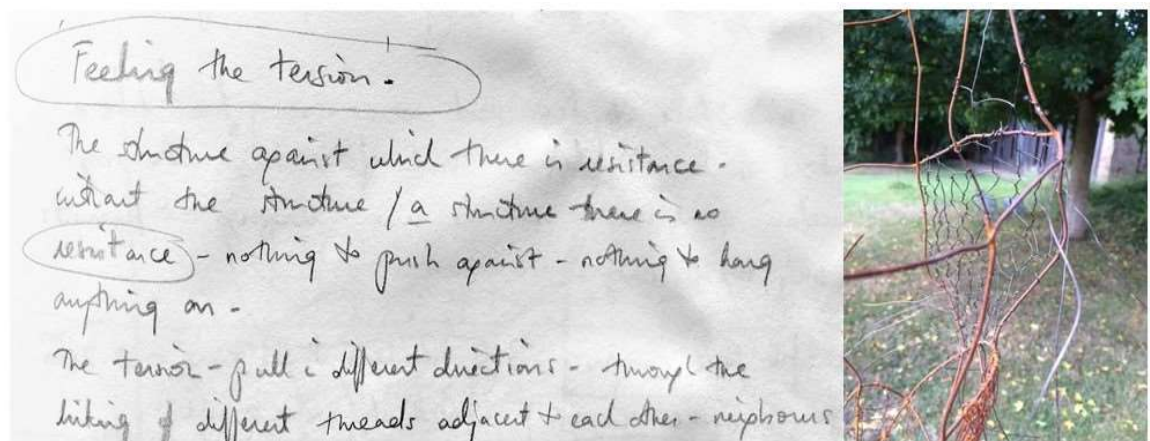 Feeling the tension.
The structure against which there is resistance -
without the structure / a structure there is no
resistance - nothing to push against - nothing to hang
anything on -
The tension - pull in different directions - through the
linking of different threads adjacent to each other - neighbours